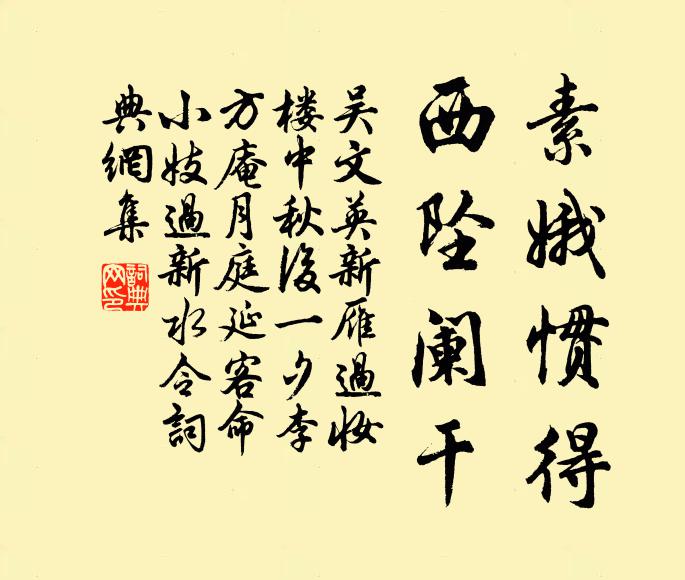 素娥惯得
西坠阑干
吴文英新雁過妝
楼中秋後一夕李
方庵月庭延客命
小妓過新水令詞
典網集
詞典
网印